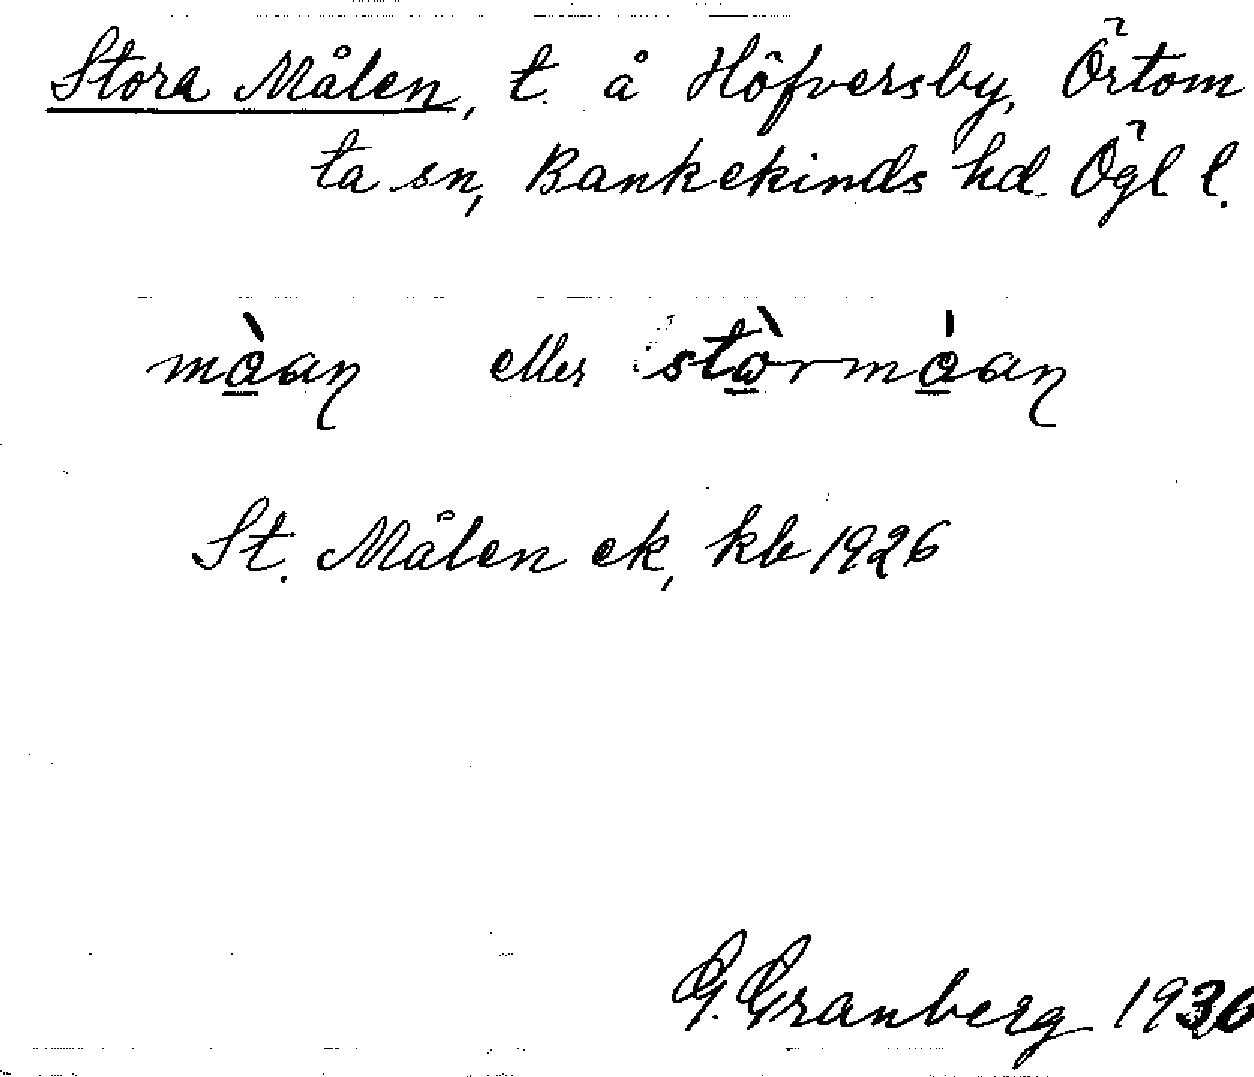 Stora Målen, t. å Höfversby, Örtom
ta sn, Bankekinds hd. Ögl l.
må̀aņ eller stò̱rmǻaņ
St. Målen ek, kb 1926
G. Granberg 1930